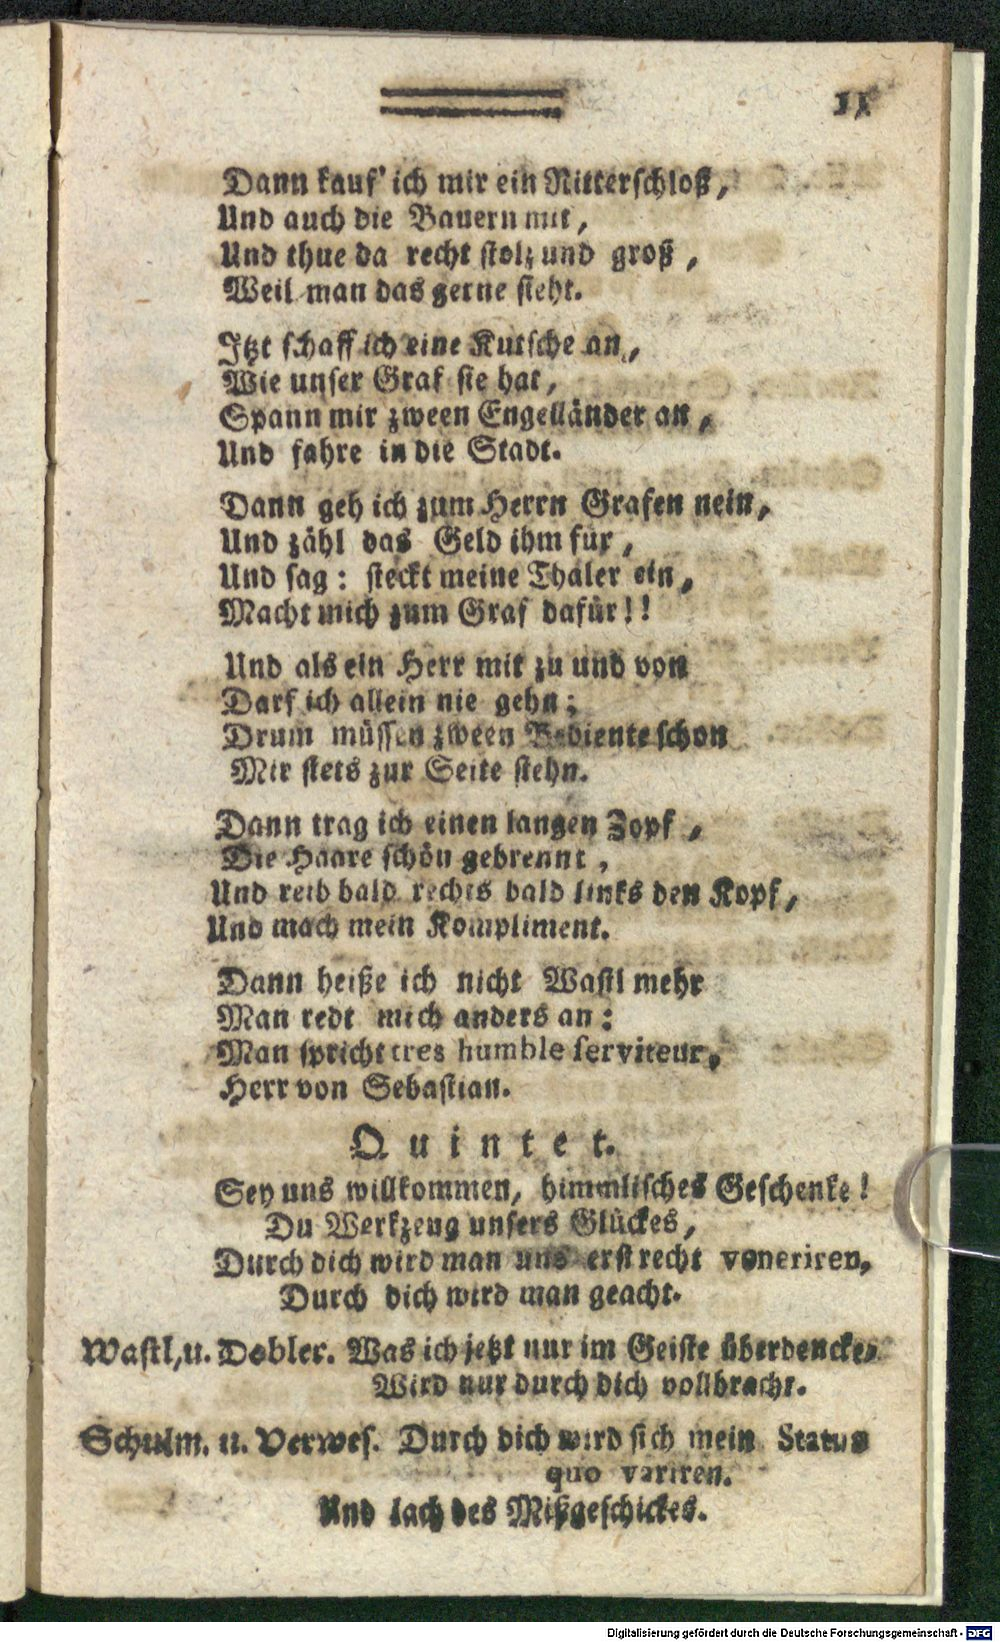 11
Dann kauf' ich mir ein Ritterschloß,
Und auch die Bauern mit,
Und thue da recht stolz und groß,
Weil man das gerne sieht.
Itzt schaff ich eine Kutsche an,
Wie unser Graf sie hat,
Spann mir zween Engelländer an,
Und fahre in die Stadt.
Dann geh ich zum Herrn Grafen nein,
Und zähl das Geld ihm für,
Und sag: steckt meine Thaler ein,
Macht mich zum Graf dafür!!
Und als ein Herr mit zu und von
Darf ich allein nie gehn;
Drum müssen zween Bediente schon
Mir stets zur Seite stehn.
Dann trag ich einen langen Zopf,
Die Haare schön gebrennt,
Und reib bald rechts bald links den Kopf,
Und mach mein Kompliment.
Dann heiße ich nicht Wastl mehr
Man redt mich anders an:
Man spricht tres humble serviteur,
Herr von Sebastian.
Quintet.
Sey uns willkommen, himmlisches Geschenke!
Du Werkzeug unsers Glückes,
Durch dich wird man uns erst recht veneriren,
Durch dich wird man geacht.
Wastl, u. Dobler. Was ich jetzt nur im Geiste überdencke,
Wird nur durch dich vollbracht.
Schulm. u. Verwes. Durch dich wird sich mein Status
quo variren.
Und lach des Mißgeschickes.
Digitalisierung gefördert durch die Deutsche Forschungsgemeinschaft - DFG